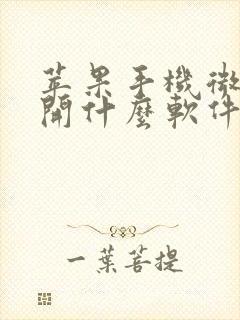 苹果手機微
開什麼軟件
一葉菩提